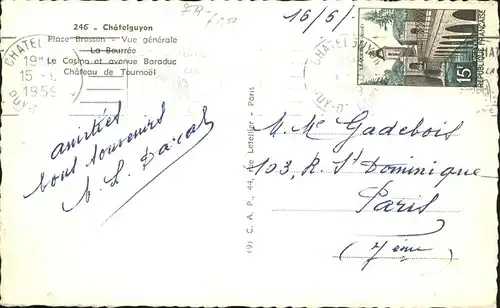 246 - Châtelguyon
Place Brosson - Vue générale
La Bourrée
Le Casino et avenue Baraduc
Château de Tournoël
16/5/
CHATEL
19H
15 -
1959
PUY-D
15F
amitiés
bons souvenirs
(9) C. A. P., 44, rue Letellier - Paris
M. Me Gadebois
103, R. St Dominique
Paris
(7ème)